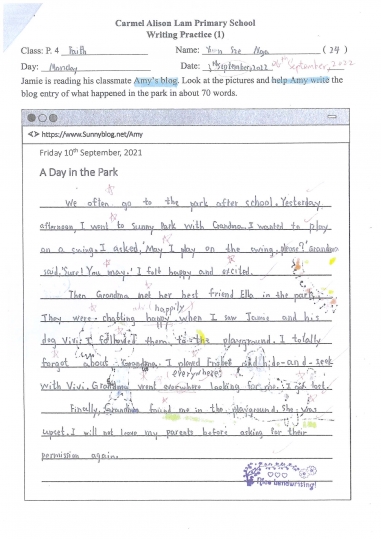 Carmel Alison Lam Primary School
Writing Practice (1)
Class: P. 4 Faith Name: Yuen Sze Nga ( 24 )
Day: Monday Date: September, 2022 September, 2022
Jamie is reading his classmate Amy's blog. Look at the pictures and help Amy write the
blog entry of what happened in the park in about 70 words.
https://www.Sunnyblog.net/Amy
Friday 10th September, 2021
A Day in the Park
We often go to the park after school. Yesterday
afternoon, I went to Sunny Park with Grandma. I wanted to play
on a swing. I asked, 'May I play on the swing, please?' Grandma
said, 'Sure! You may.' I felt happy and excited.
Then Grandma met her best friend Ella in the park.
happily
They were chatting happy when I saw Jamie and his
dog Vivi. I followed them to the playground. I totally
forgot about Grandma. I played Frisbee and hide-and-seek
everywhere
with Vivi. Grandma went everywhere looking for me. I lost.
Finally, Grandma found me in the playground. She was
upset. I will not leave my parents before asking for their
permission again.
Nice handwriting!